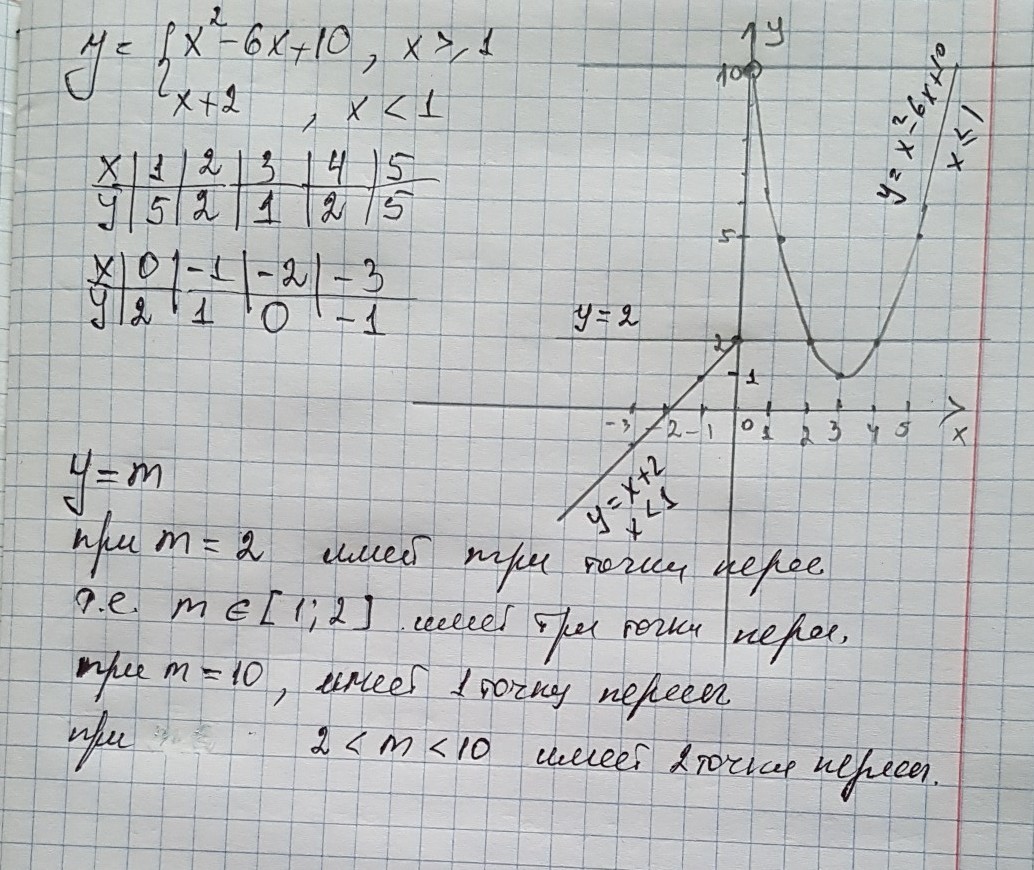 y = { x² - 6x + 10 , x ≥ 1
x + 2 , x < 1
x | 1 | 2 | 3 | 4 | 5
y | 5 | 2 | 1 | 2 | 5
x | 0 | -1 | -2 | -3
y | 2 | 1 | 0 | -1
y
10
y = x² - 6x + 10
x ≤ 1
5
y = 2
2
1
-3 -2 -1 0 1 2 3 4 5 x
y = x + 2
x < 1
y = m
при m = 2 имеет три точки перес.
т.е. m ∈ [1; 2] имеет три точки перес.
при m = 10, имеет 1 точку пересеч
при 2 < m < 10 имеет 2 точки пересеч.